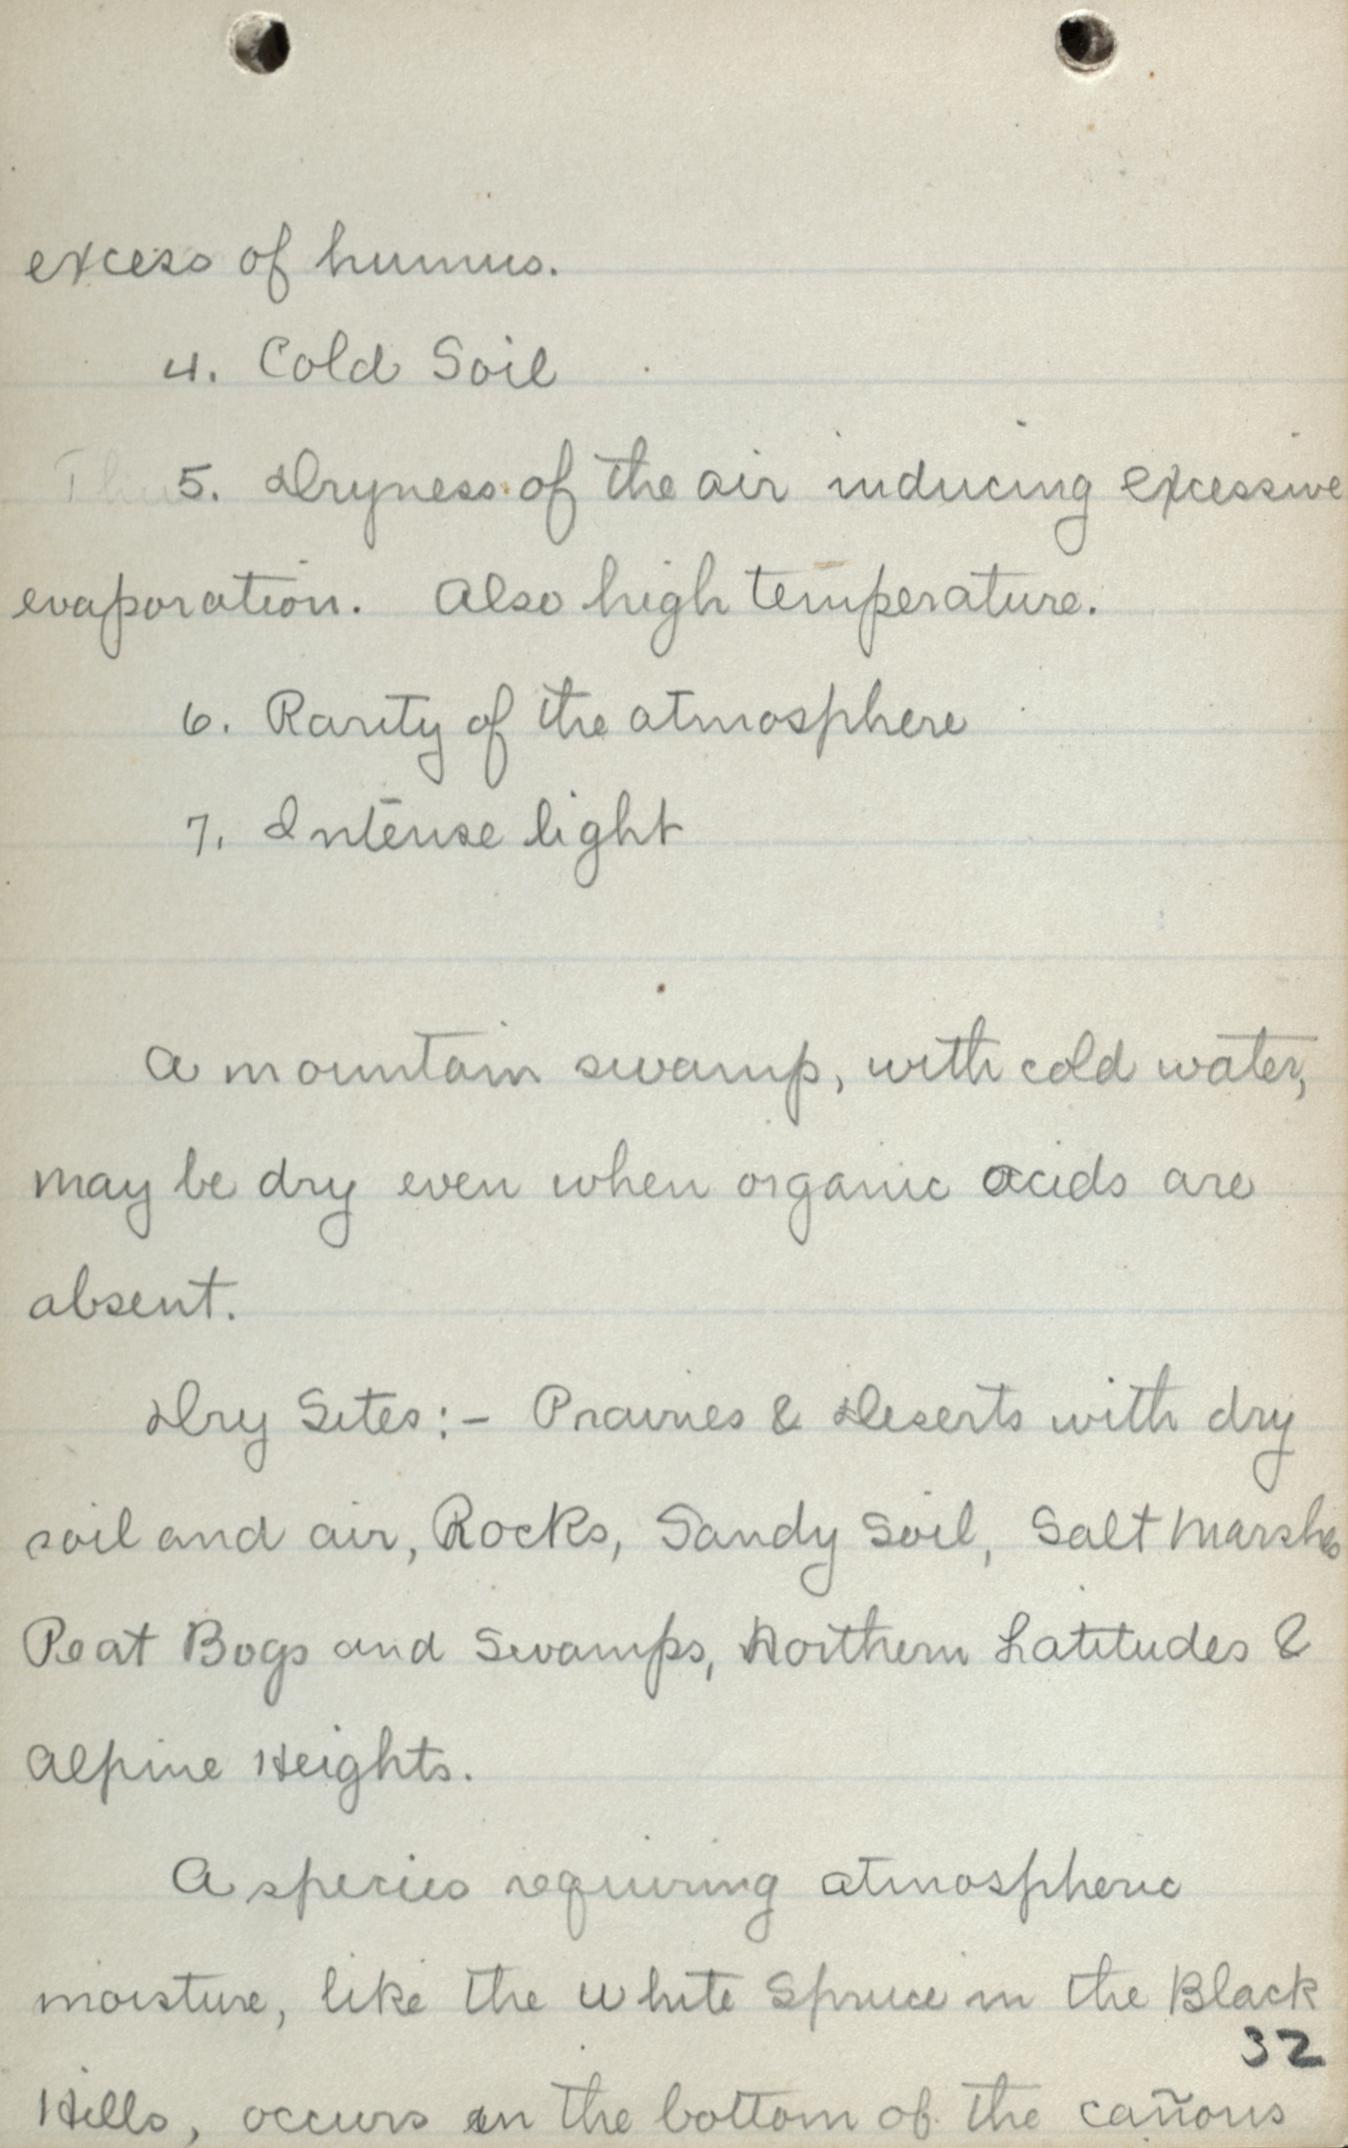 excess of humus.
4. Cold Soil
5. Dryness of the air inducing excessive
evaporation. Also high temperature.
6. Rarity of the atmosphere
7. Intense light
A mountain swamp, with cold water,
may be dry even when organic acids are
absent.
Dry Sites:- Prairies & Deserts with dry
soil and air, Rocks, Sandy Soil, Salt Marshes
Peat Bogs and Swamps, Northern Latitudes &
Alpine Heights.
A species requiring atmospheric
moisture, like the White Spruce in the Black
32
Hills, occurs in the bottom of the cañons